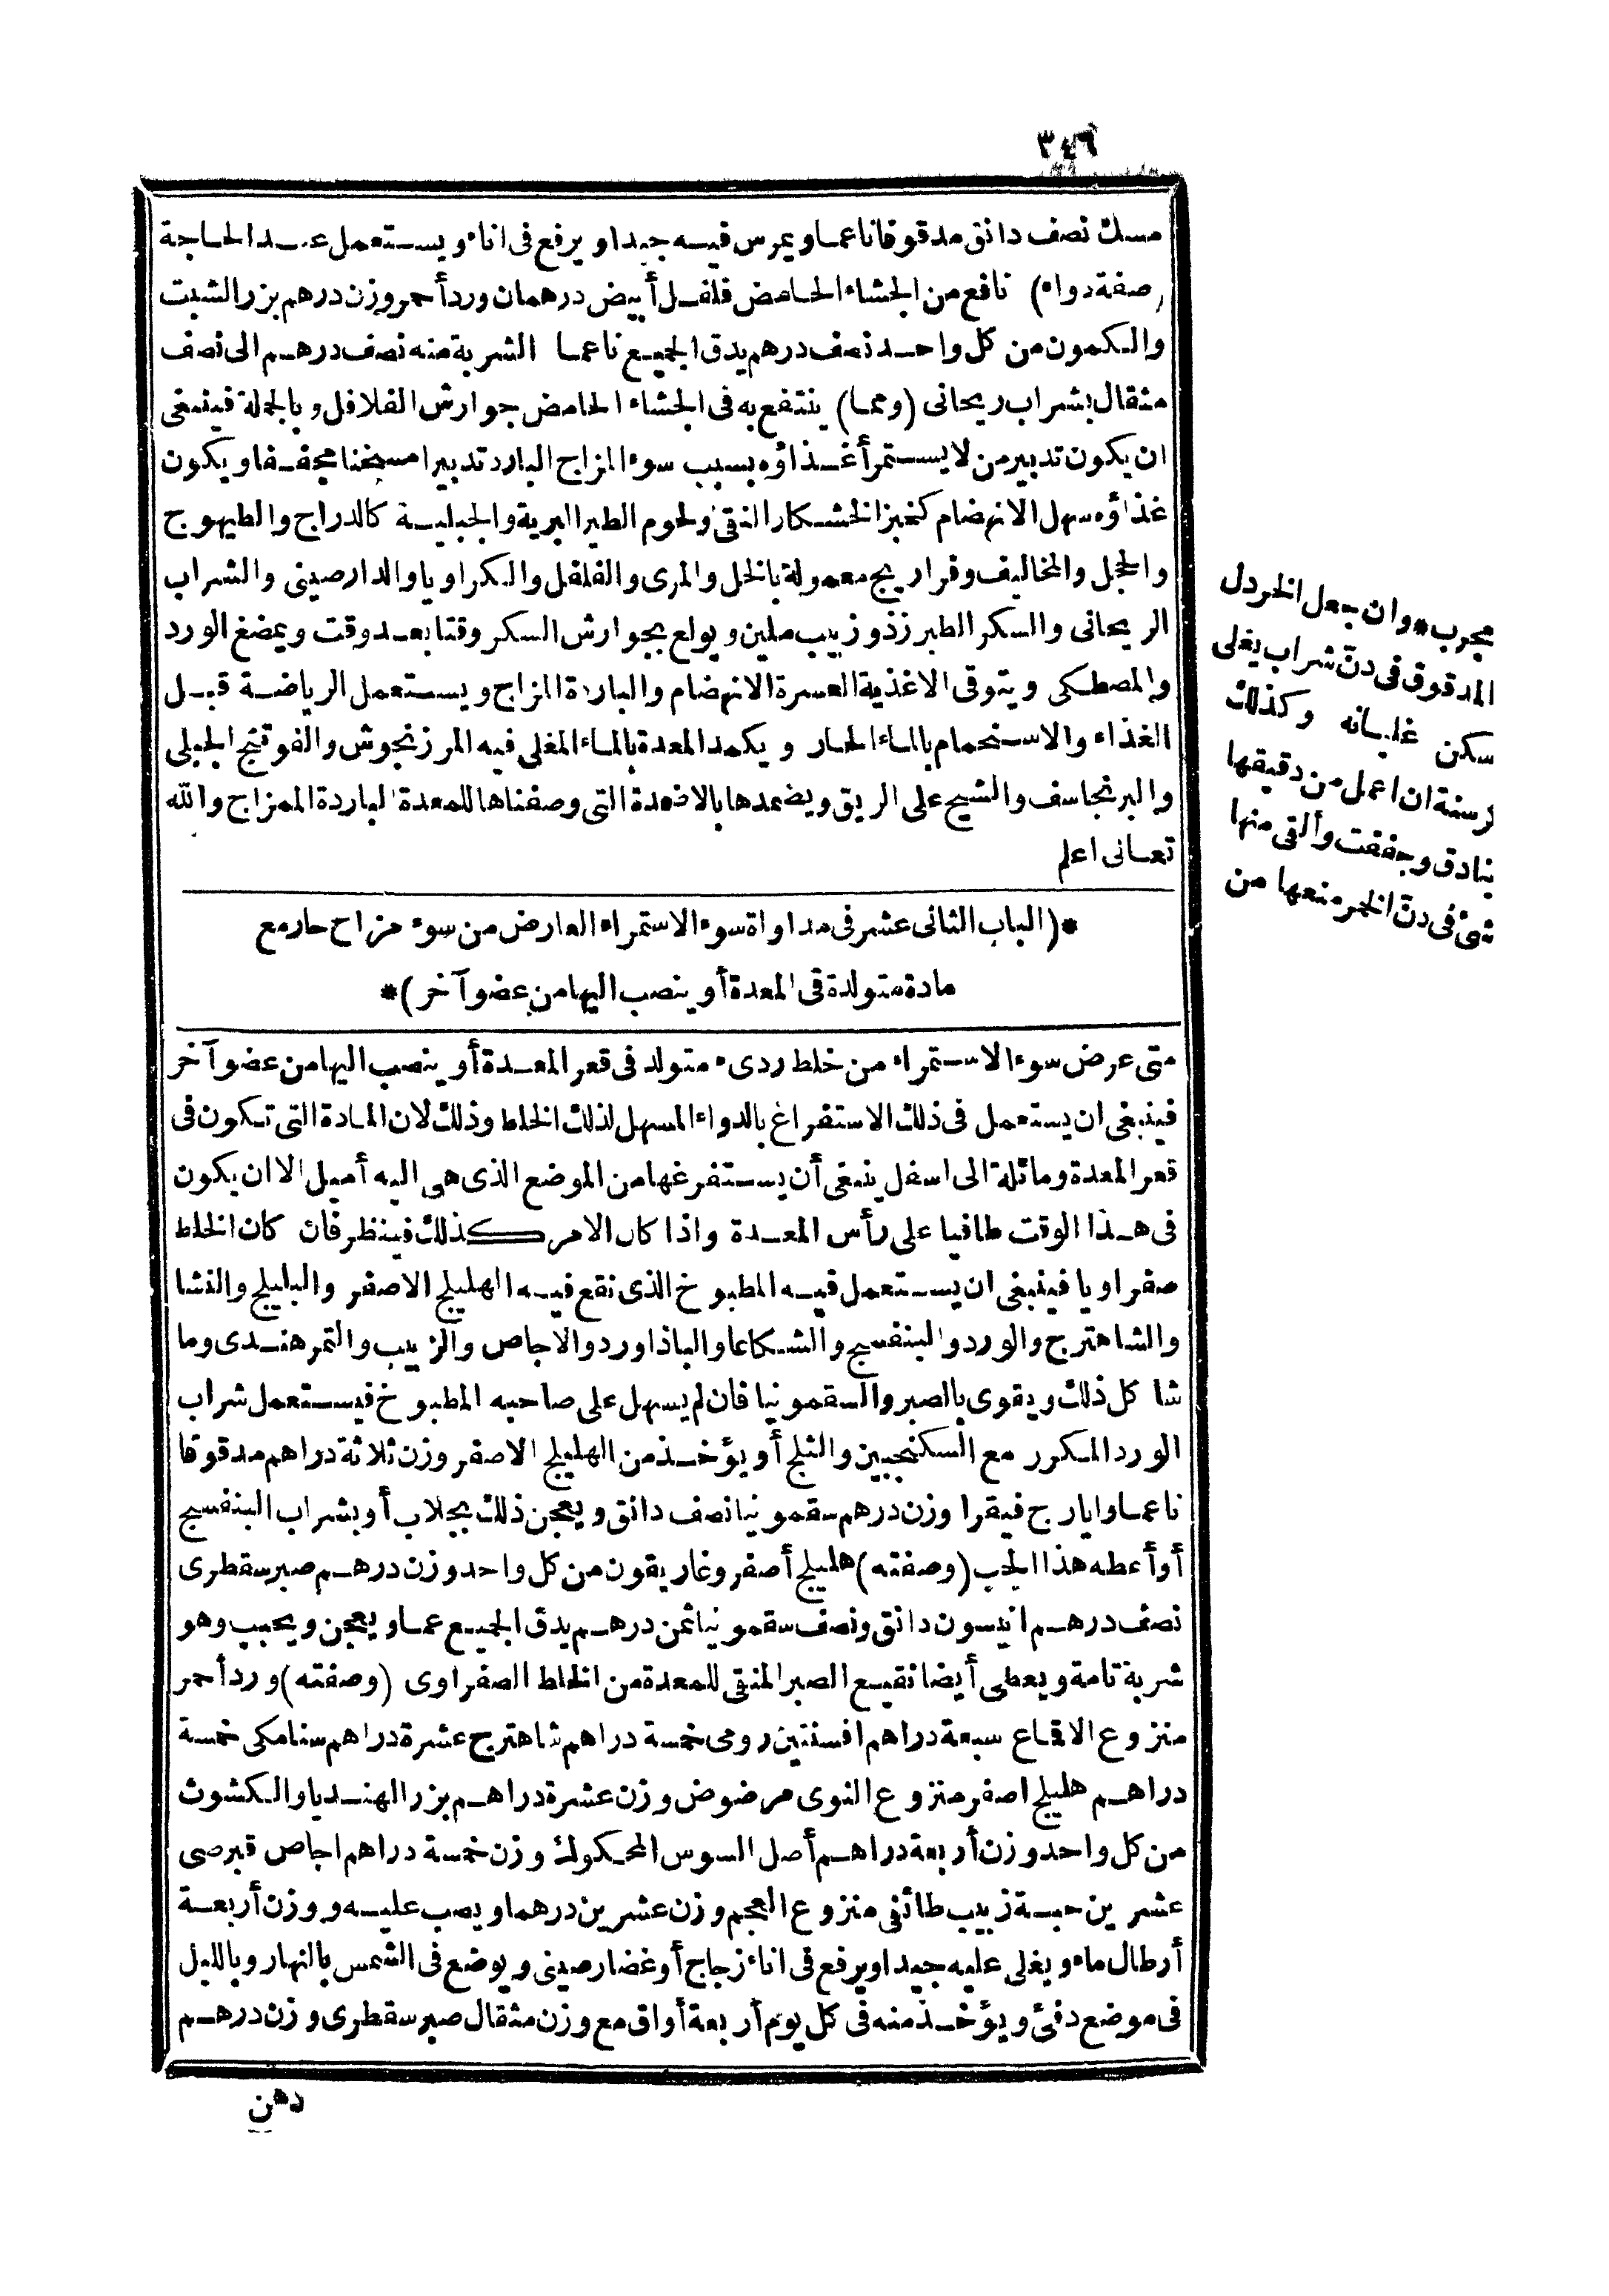 ٣٤٦
مسك نصف دانق مدقوقا ناعما ويمرس فيه جيدا ويرفع فى اناء ويستعمل عند الحاجة
(صفة دواء) نافع من الجشاء الحامض فلفل أبيض درهمان ورد أحمر وزن درهم بزر الشبت
والكمون من كل واحد نصف درهم يدق الجميع ناعما الشربة منه نصف درهم الى نصف
مثقال بشراب ريحانى (ومما) ينتفع به فى الجشاء الحامض جوارش الفلافل وبالجملة فينبغى
ان يكون تدبير من لا يستمرأ غذاؤه بسبب سوء المزاج البارد تدبيرا مسخنا مجففا ويكون
غذاؤه سهل الانهضام كخبز الخشكار النقى ولحوم الطير البرية والجبلية كالدراج والطيهوج
والحجل والمخاليف وفراريج معمولة بالخل والمرى والفلفل والكراويا والدارصينى والشراب
الريحانى والسكر الطبرزذ وزبيب ملين ويولع بجوارش السكر وقتا بعد وقت ويمضغ الورد
والمصطكى ويتوقى الاغذية العسرة الانهضام والباردة المزاج ويستعمل الرياضة قبل
الغذاء والاستحمام بالماء الحار ويكمد المعدة بالماء المغلى فيه المرزنجوش والفوتنج الجبلى
والبرنجاسف والشيح على الريق ويضمدها بالاضمدة التى وصفناها للمعدة الباردة المزاج والله
تعالى اعلم
*(الباب الثانى عشر فى مداواة سوء الاستمراء العارض من سوء مزاج حار مع
مادة متولدة فى المعدة أو ينصب اليها من عضو آخر)*
متى عرض سوء الاستمراء من خلط ردىء متولد فى قعر المعدة أو ينصب اليها من عضو آخر
فينبغى ان يستعمل فى ذلك الاستفراغ بالدواء المسهل لذلك الخلط وذلك لان المادة التى تكون فى
قعر المعدة ومائلة الى اسفل ينبغى أن يستفرغها من الموضع الذى هى اليه أميل الا ان يكون
فى هذا الوقت طافيا على رأس المعدة واذا كان الامر كذلك فينظر فان كان الخلط
صفراويا فينبغى ان يستعمل فيه المطبوخ الذى نقع فيه الهليلج الاصفر والبليلج والنشا
والشاهترج والورد والبنفسج والشكاعا والباذاورد والاجاص والزبيب والتمرهندى وما
شاكل ذلك ويقوى بالصبر والسقمونيا فان لم يسهل على صاحبه المطبوخ فيستعمل شراب
الورد المكرر مع السكنجبين والثلج أو يؤخذ من الهليلج الاصفر وزن ثلاثة دراهم مدقوقا
ناعما وايارج فيقرا وزن درهم سقمونيا نصف دانق ويعجن ذلك بجلاب أو بشراب البنفسج
أو أعطه هذا الحب (وصفته) هليلج أصفر وغاريقون من كل واحد وزن درهم صبر سقطرى
نصف درهم انيسون دانق ونصف سقمونيا ثمن درهم يدق الجميع عما ويعجن ويحبب وهو
شربة تامة ويعطى أيضا نقيع الصبر المنقى للمعدة من الخلط الصفراوى (وصفته) ورد أحمر
منزوع الاقماع سبعة دراهم افسنتين رومى خمسة دراهم شاهترج عشرة دراهم سنامكى خمسة
دراهم هليلج اصفر منزوع النوى مرضوض وزن عشرة دراهم بزر الهنديا والكشوث
من كل واحد وزن أربعة دراهم أصل السوس المحكوك وزن خمسة دراهم اجاص قبرصى
عشرين حبة زبيب طائفى منزوع العجم وزن عشرين درهما ويصب عليه ووزن أربعة
أرطال ماء ويغلى عليه جيدا ويرفع فى اناء زجاج أو غضار صينى ويوضع فى الشمس بالنهار وبالليل
فى موضع دفئ ويؤخذ منه فى كل يوم أربعة أواق مع وزن مثقال صبر سقطرى وزن درهم
دهن
مجرب * وان جعل الخردل
المدقوق فى دنّ شراب يغلى
سكن غليانه وكذلك
لرسنة ان اعمل من دقيقها
بنادق وجففت وألقى منها
شئ فى دنّ الخمر منعها من